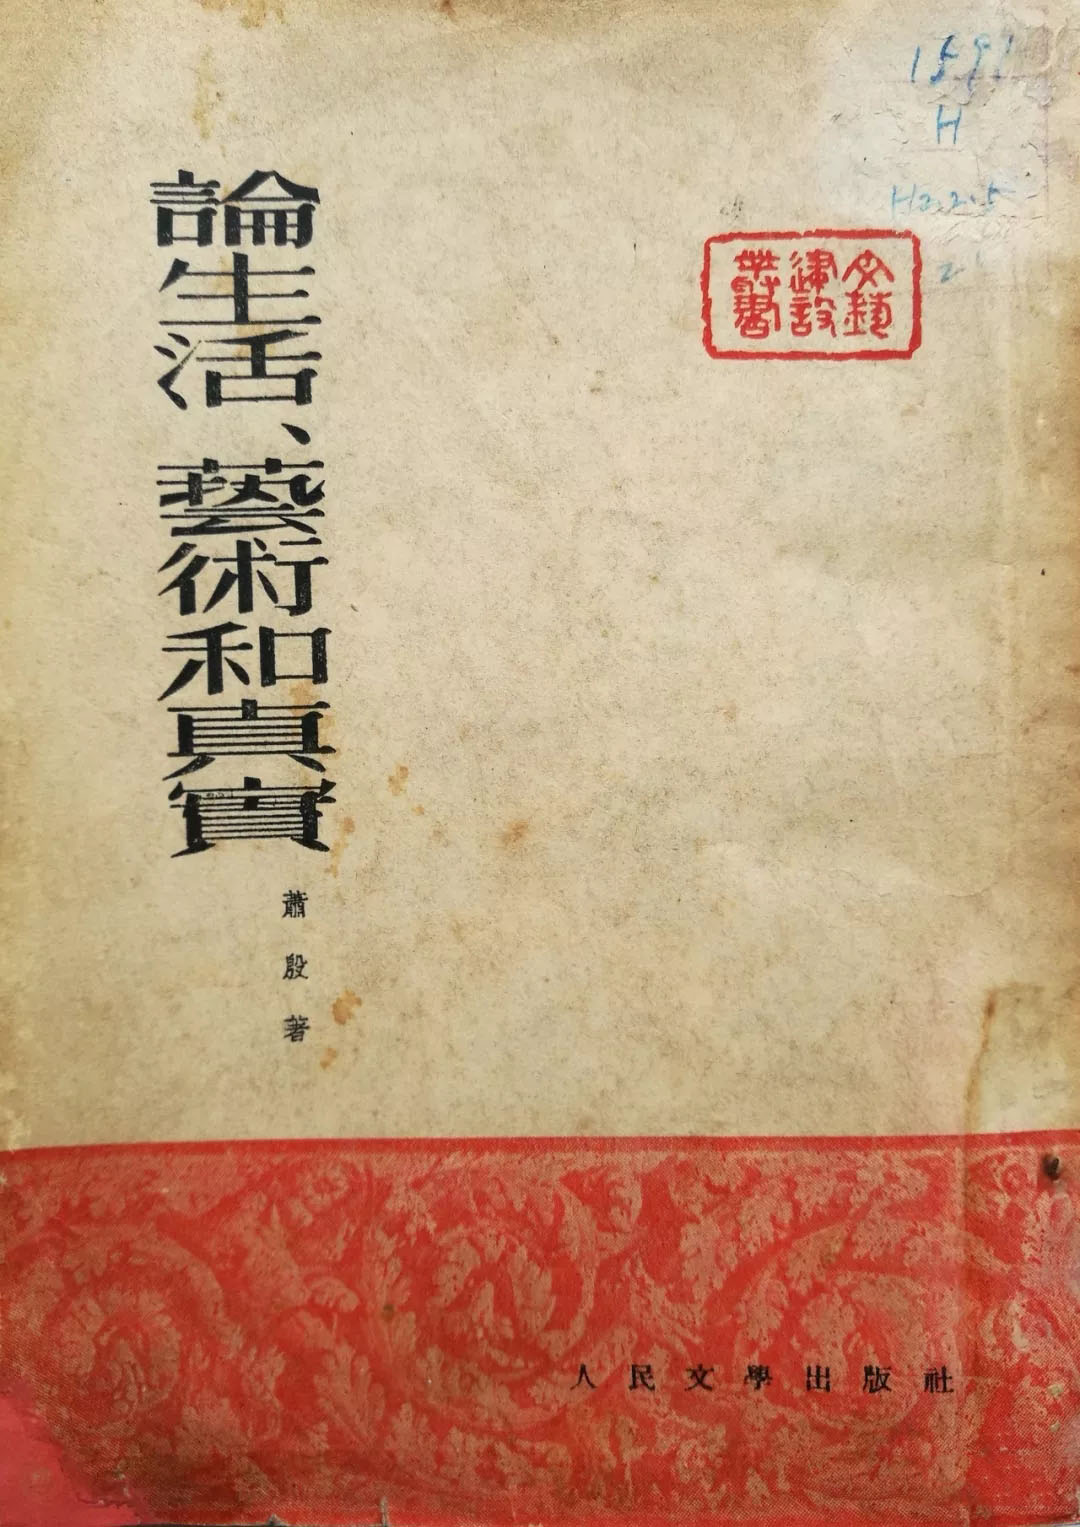 1591
H
H2.2.5
文藝
建設
叢書
論生活、藝術和真實
蕭殷著
人民文學出版社